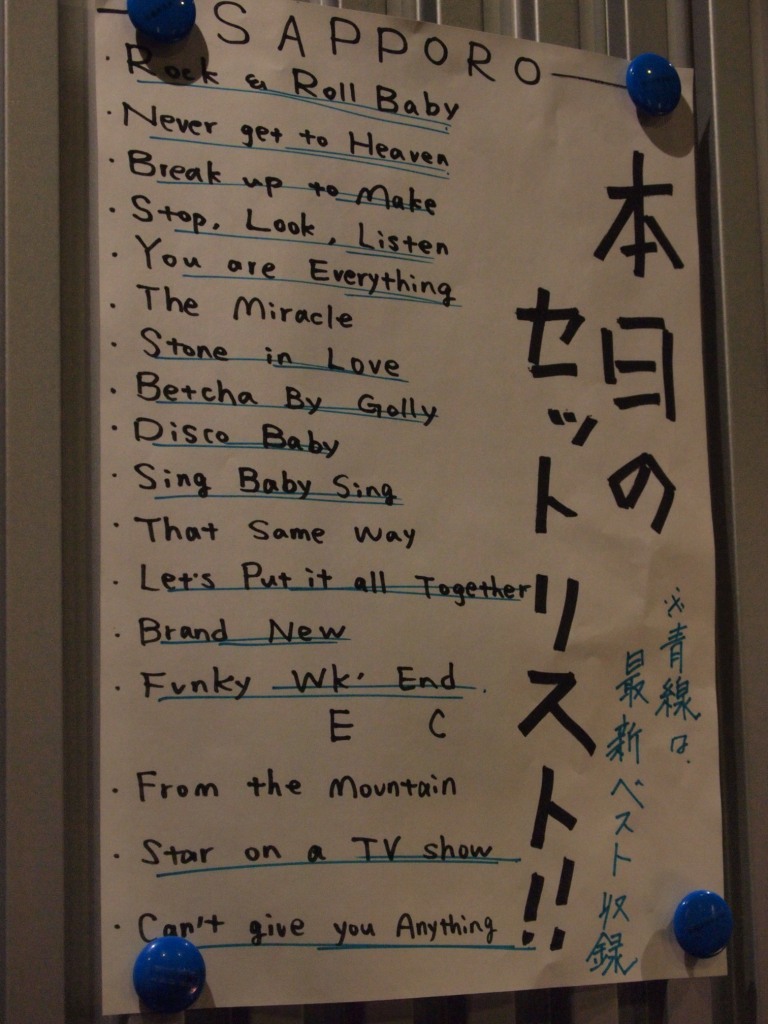 SAPPORO
・Rock & Roll Baby
・Never get to Heaven
・Break up to Make
・Stop, Look, Listen
・You are Everything
・The Miracle
・Stone in Love
・Betcha By Golly
・Disco Baby
・Sing Baby Sing
・That Same Way
・Let's Put it all Together
・Brand New
・Funky Wk' End
E C
・From the Mountain
・Star on a TV show
・Can't give you Anything
本日の
セットリスト!!
※青線は、
最新ベスト収録